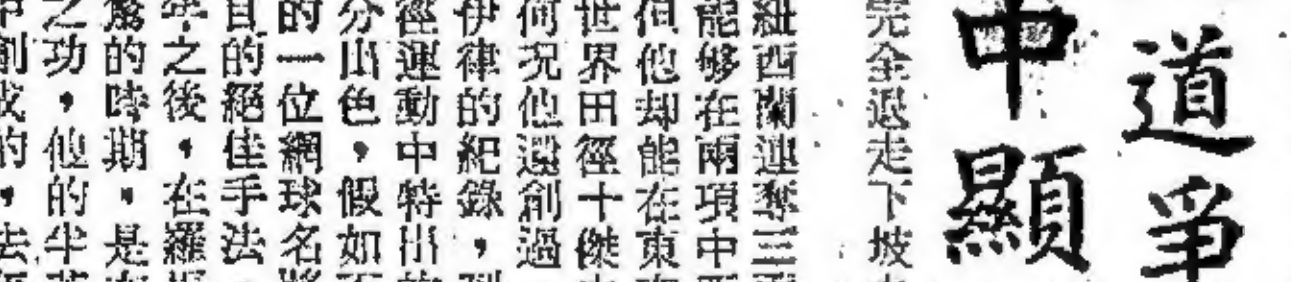 道爭
中顯
完全退走下坡
紐西蘭連奪三
能够在兩項中
但他却能在東
世界田徑十傑
何況他還創過
伊律的紀錄，
徑運動中特出
分出色，假如
的一位網球名將
目的絕佳手法
年之後，在羅
驚的時期，是
之功，他的半
中創成的，去